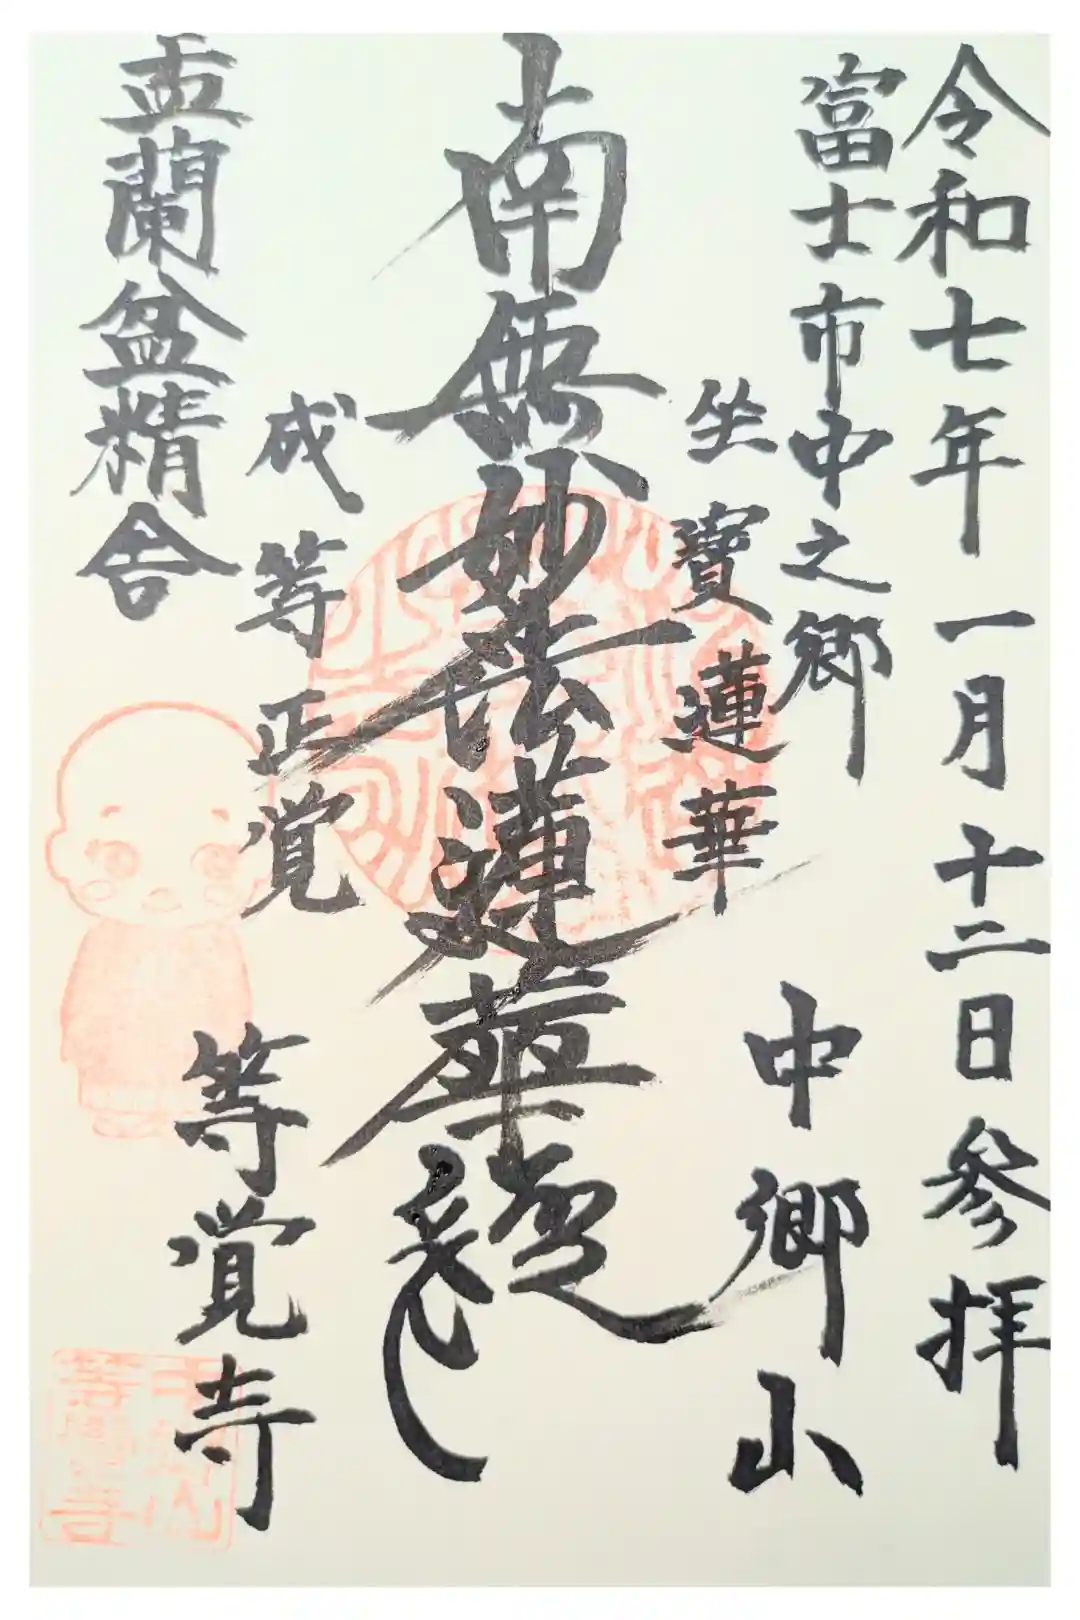 令和七年一月十二日参拝
富士市中之郷
坐寳蓮華
中郷山
南無妙法蓮華経
成等正覚
等覚寺
盂蘭盆精舎